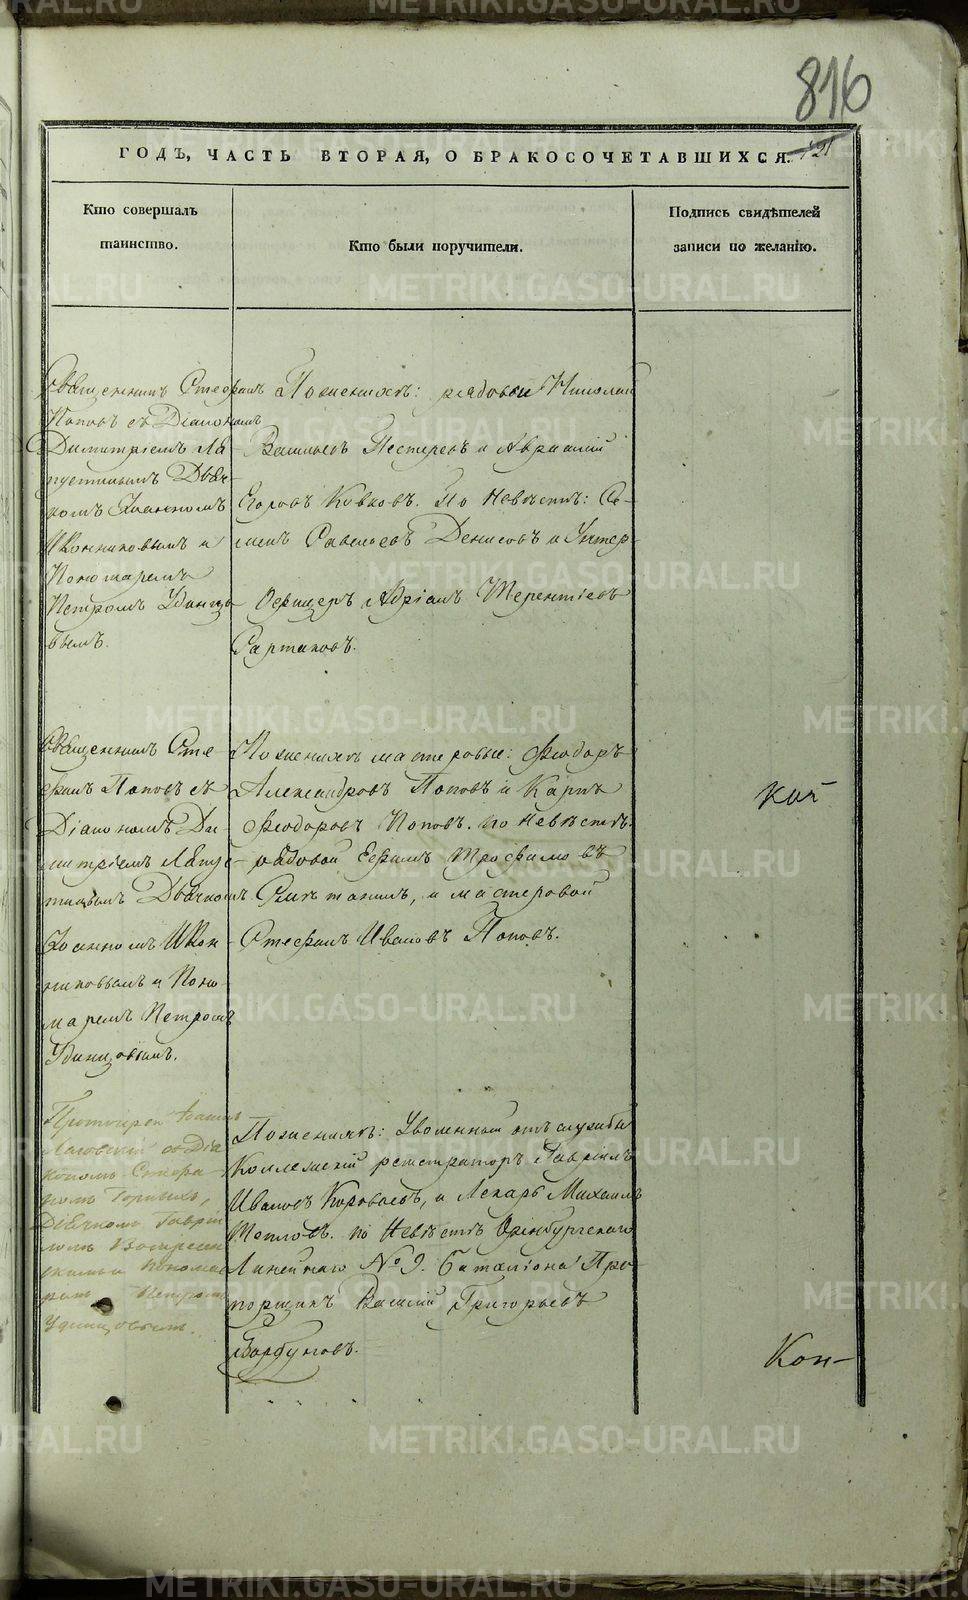 816
ГОДЪ, ЧАСТЬ ВТОРАЯ, О БРАКОСОЧЕТАВШИХСЯ. 121
Кто совершалъ
таинство.
Кто были поручители.
Подпись свидѣтелей
записи по желанію.
Священникъ Стефанъ
Поповъ съ Діакономъ
Димитріемъ Ла-
пустинымъ Дьяч-
комъ Іоанномъ
Иконниковымъ и
Пономаремъ
Петромъ Удинцо-
вымъ.
По женихѣ: рядовые Николай
Васильевъ Пестеревъ и Авраамій
Егоровъ Ковковъ. По Невѣстѣ: Се-
менъ Савельевъ Денисовъ и Унтер-
Офицеръ Адріанъ Терентьевъ
Сартаковъ.
Священникъ Сте-
фанъ Поповъ съ
Діакономъ Ди-
митріемъ Лапус-
тинымъ Дьячкомъ
Іоанномъ Икон-
никовымъ и Поно-
маремъ Петромъ
Удинцовымъ.
По женихѣ мастеровые: Феодоръ
Александровъ Поповъ и Карпъ
Феодоровъ Поповъ. по Невѣстѣ:
рядовой Ефимъ Трофимовъ
и мастеровой
Стефанъ Ивановъ Поповъ.
Кол
Протоіерей Іоаннъ
съ Діа-
кономъ
Горныхъ,
Дьячкомъ Гаврі-
ломъ Воскресен-
скимъ и Понома-
ремъ Петромъ
Удинцовымъ.
По женихѣ: Уволенный отъ службы
Коллежскій регистраторъ Гавріилъ
Ивановъ Короваевъ, и Лекарь Михаилъ
Тепловъ. по Невѣстѣ Оренбургскаго
Линейнаго № 9. Баталіона Пра-
порщикъ Василій Григорьевъ
Горбуновъ.
Кон-
METRIKI.GASO-URAL.RU